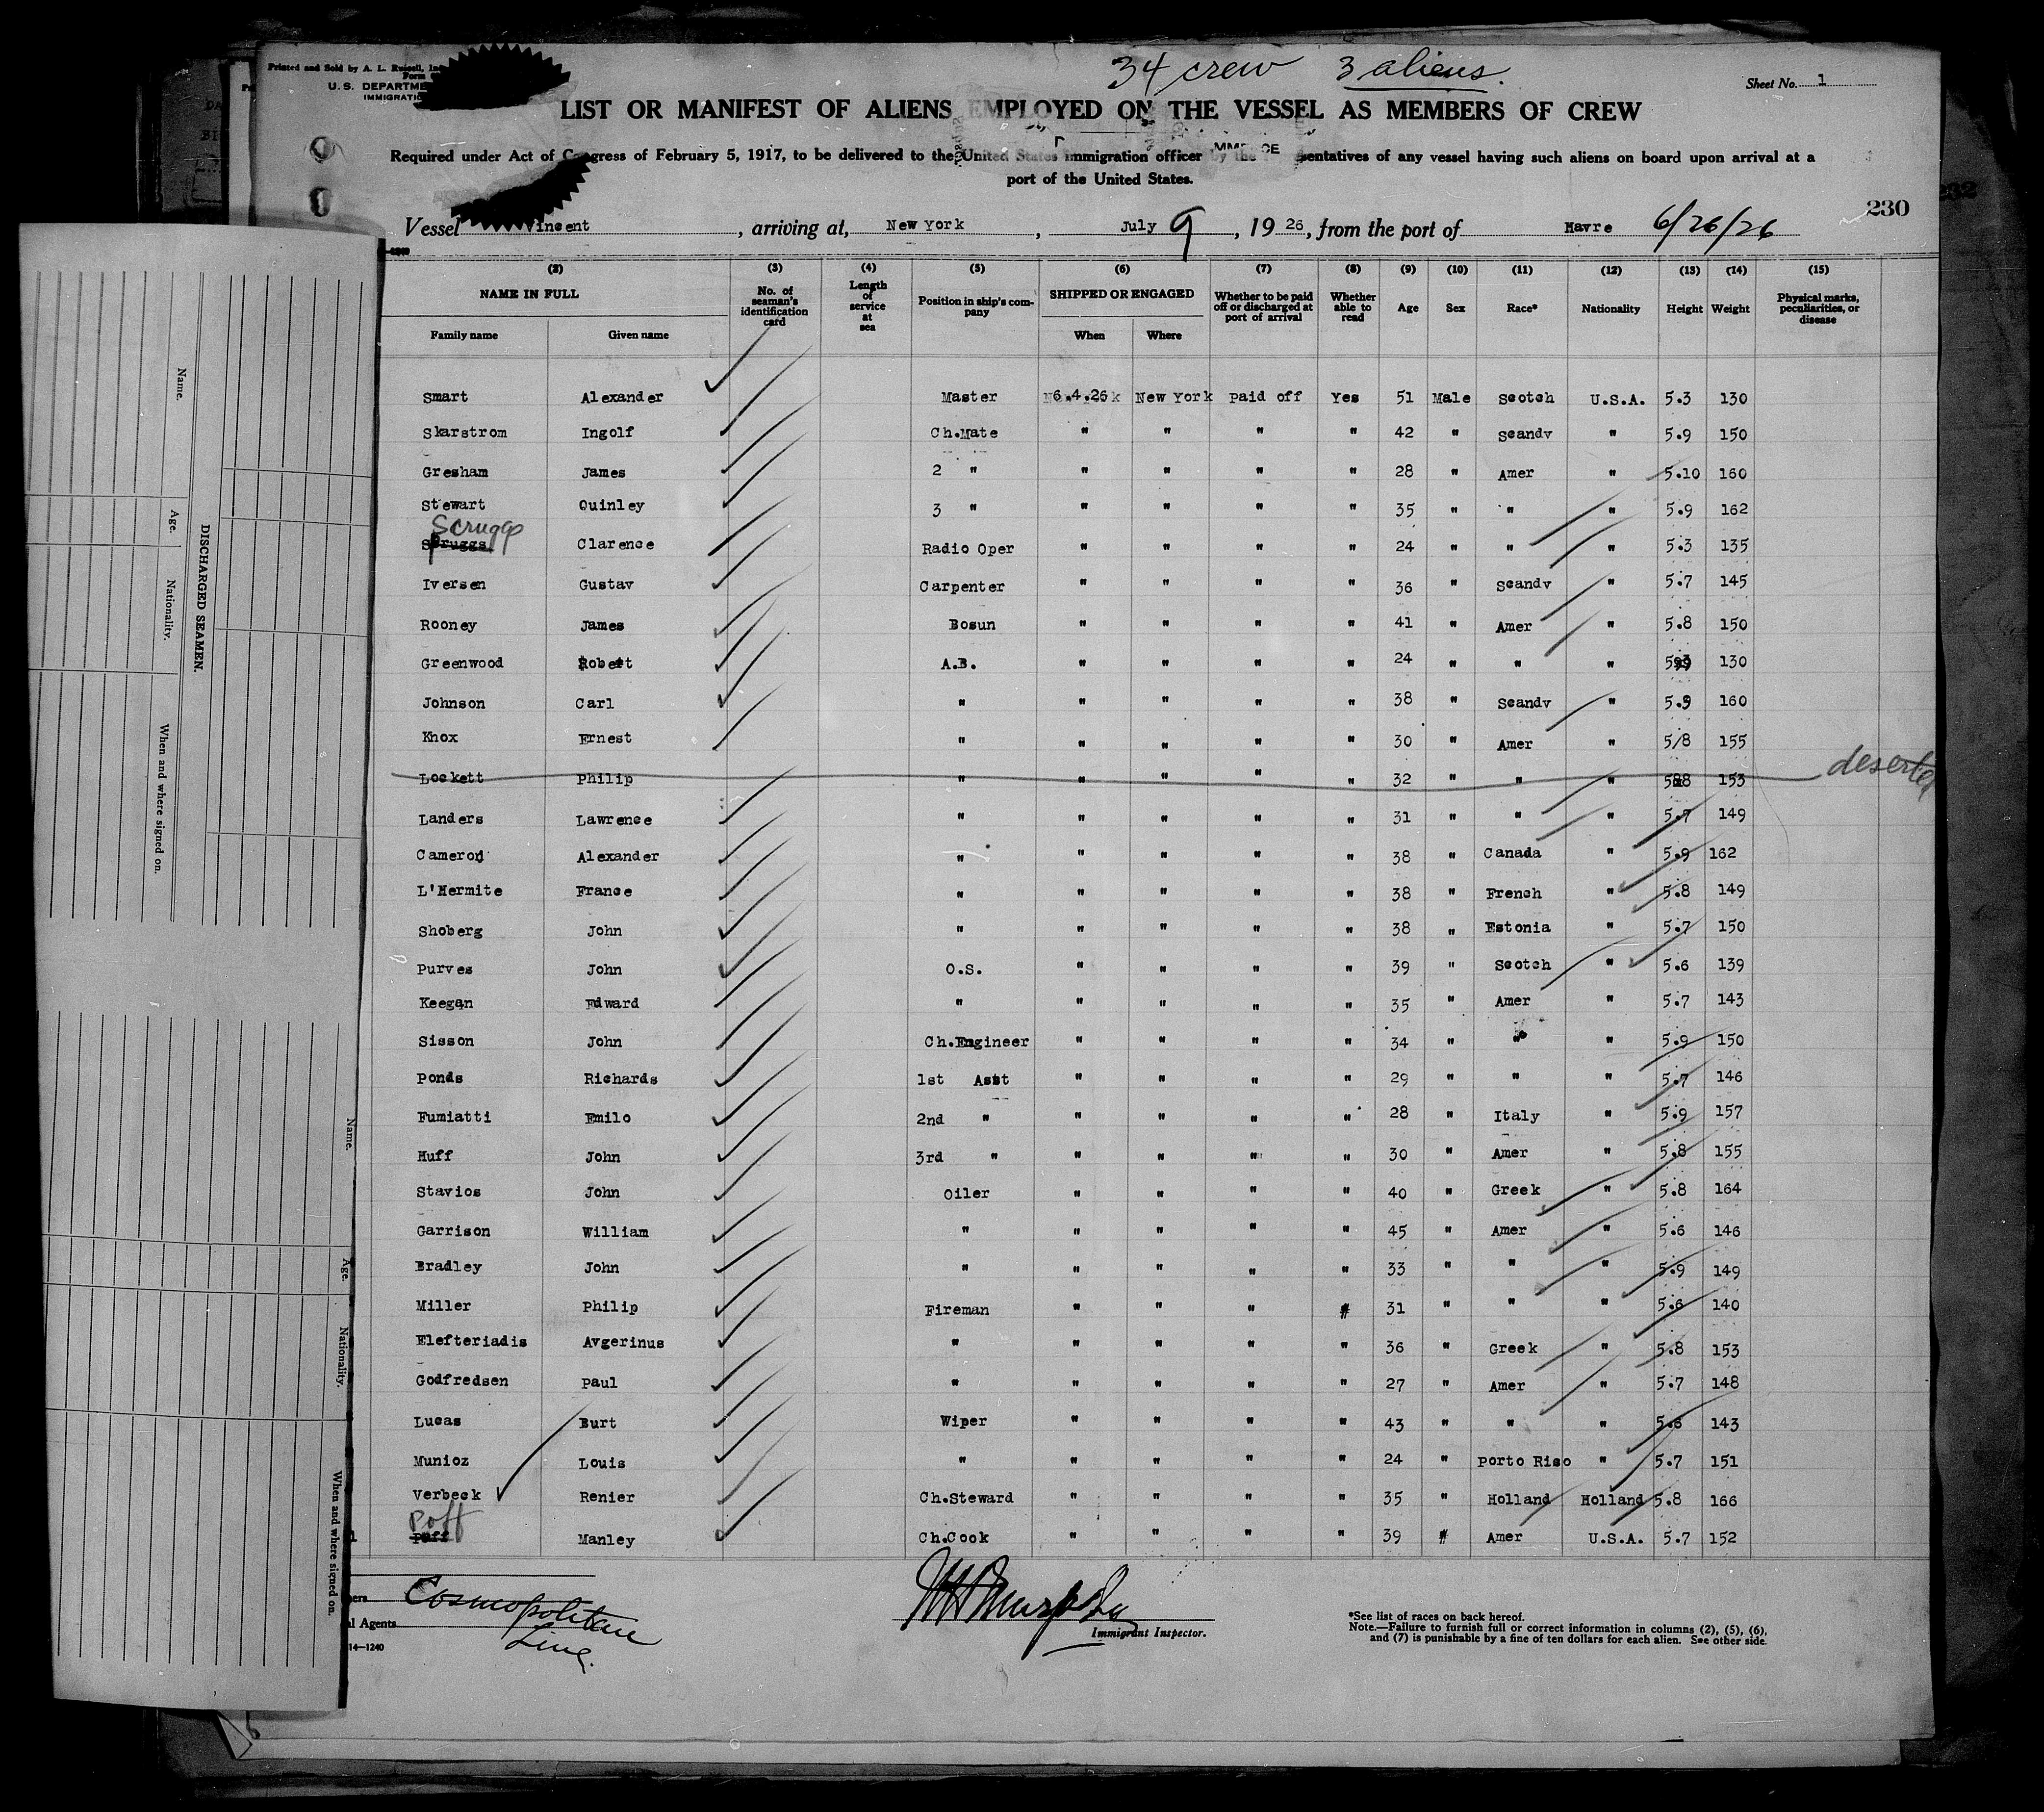 34 crew 3 aliens.
Printed and Sold by A. L. Russell, In
Form
U.S. DEPARTME
IMMIGRATIO
Sheet No. 1
LIST OR MANIFEST OF ALIENS EMPLOYED ON THE VESSEL AS MEMBERS OF CREW
Required under Act of Congress of February 5, 1917, to be delivered to the United States immigration officer by the sentatives of any vessel having such aliens on board upon arrival at a
port of the United States.
230
Vessel Vincent, arriving at, New York, July 9, 1926, from the port of Havre 6/26/26
(2) (3) (4) (5) (6) (7) (8) (9) (10) (11) (12) (13) (14) (15)
NAME IN FULL No. of seaman's identification card Length of service at sea Position in ship's company SHIPPED OR ENGAGED Whether to be paid off or discharged at port of arrival Whether able to read Age Sex Race* Nationality Height Weight Physical marks, peculiarities, or disease
Family name Given name When Where
Smart Alexander Master 6.4.26 New York Paid off Yes 51 Male Scotch U.S.A. 5.3 130
Skarstrom Ingolf Ch.Mate " " " " 42 " Scandv " 5.9 150
Gresham James 2 " " " " " 28 " Amer " 5.10 160
Stewart Quinley 3 " " " " " 35 " " " 5.9 162
Scruggs
Spruggs Clarence Radio Oper " " " " 24 " " " 5.3 135
Iversen Gustav Carpenter " " " " 36 " Scandv " 5.7 145
Rooney James Bosun " " " " 41 " Amer " 5.8 150
Greenwood Robert A.B. " " " " 24 " " " 130
Johnson Carl " " " " " 38 " Scandv " 5.9 160
Knox Ernest " " " " " 30 " Amer " 5/8 155
Lockett Philip " " " " " 32 " " " 153 deserted
Landers Lawrence " " " " " 31 " " " 5.7 149
Cameron Alexander " " " " " 38 " Canada " 5.9 162
L'Hermite France " " " " " 38 " French " 5.8 149
Shoberg John " " " " " 38 " Estonia " 5.7 150
Purves John O.S. " " " " 39 " Scotch " 5.6 139
Keegan Edward " " " " " 35 " Amer " 5.7 143
Sisson John Ch.Engineer " " " " 34 " " " 5.9 150
Ponds Richards 1st Asst " " " " 29 " " " 5.7 146
Fumiatti Emilo 2nd " " " " " 28 " Italy " 5.9 157
Huff John 3rd " " " " " 30 " Amer " 5.8 155
Stavios John Oiler " " " " 40 " Greek " 5.8 164
Garrison William " " " " " 45 " Amer " 5.6 146
Bradley John " " " " " 33 " " " 5.9 149
Miller Philip Fireman " " " # 31 " " " 5.6 140
Elefteriadis Avgerinus " " " " " 36 " Greek " 5.8 153
Godfredsen Paul " " " " " 27 " Amer " 5.7 148
Lucas Burt Wiper " " " " 43 " " " 5.6 143
Munioz Louis " " " " " 24 " Porto Rico " 5.7 151
Verbeck Renier Ch.Steward " " " " 35 " Holland Holland 5.8 166
Poff
Puff Manley Ch.Cook " " " " 39 # Amer U.S.A. 5.7 152
Cosmopolitan
Line.
l Agents
14—1240
Immigrant Inspector.
*See list of races on back hereof.
Note.—Failure to furnish full or correct information in columns (2), (5), (6),
and (7) is punishable by a fine of ten dollars for each alien. See other side.
DISCHARGED SEAMEN.
Name.
Age.
Nationality.
When and where signed on.
Name.
Age.
Nationality.
When and where signed on.